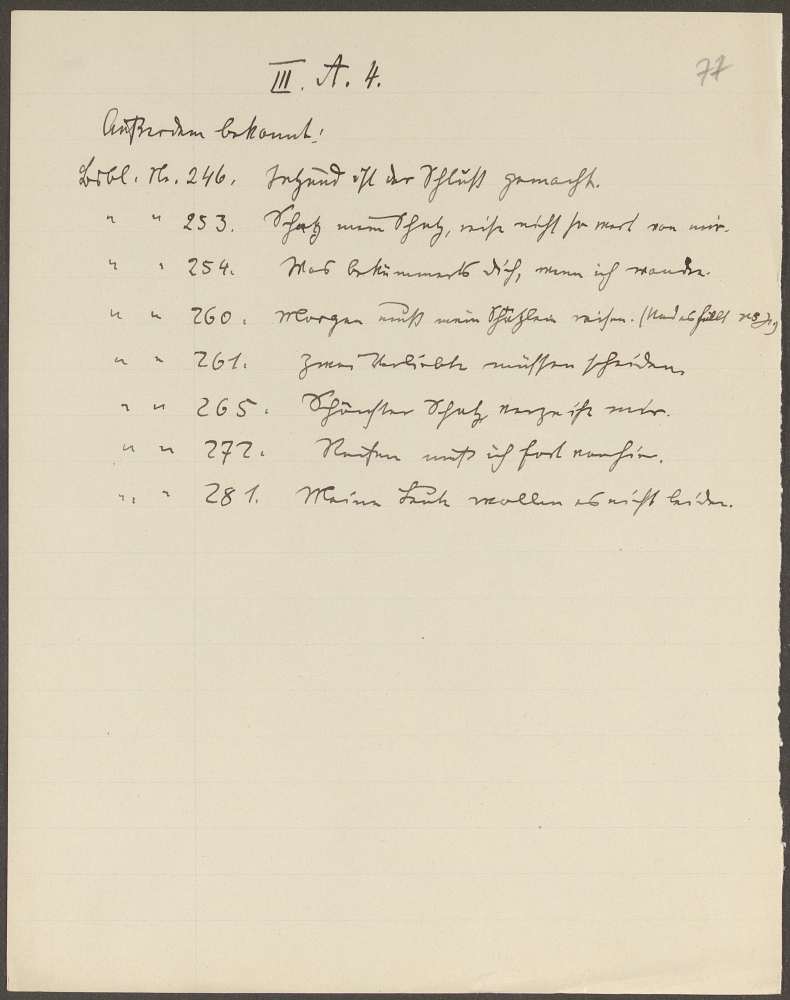 III. A. 4.
77
Außerdem bekannt:
Bibl. Nr. 246. Jetzund ist der Schluß gemacht.
" " 253. Schatz mein Schatz, reise nicht so weit von mir.
" " 254. Was bekümmerts dich, wenn ich wandre.
" " 260. Morgen muß mein Schätzlein reisen. (Und es fällt
" " 261. Zwei Verliebte müssen scheiden.
" " 265. Schönster Schatz verzeihe mir.
" " 272. Reisen muß ich fort von hier.
" " 281. Meine Leute wollen es nicht leiden.